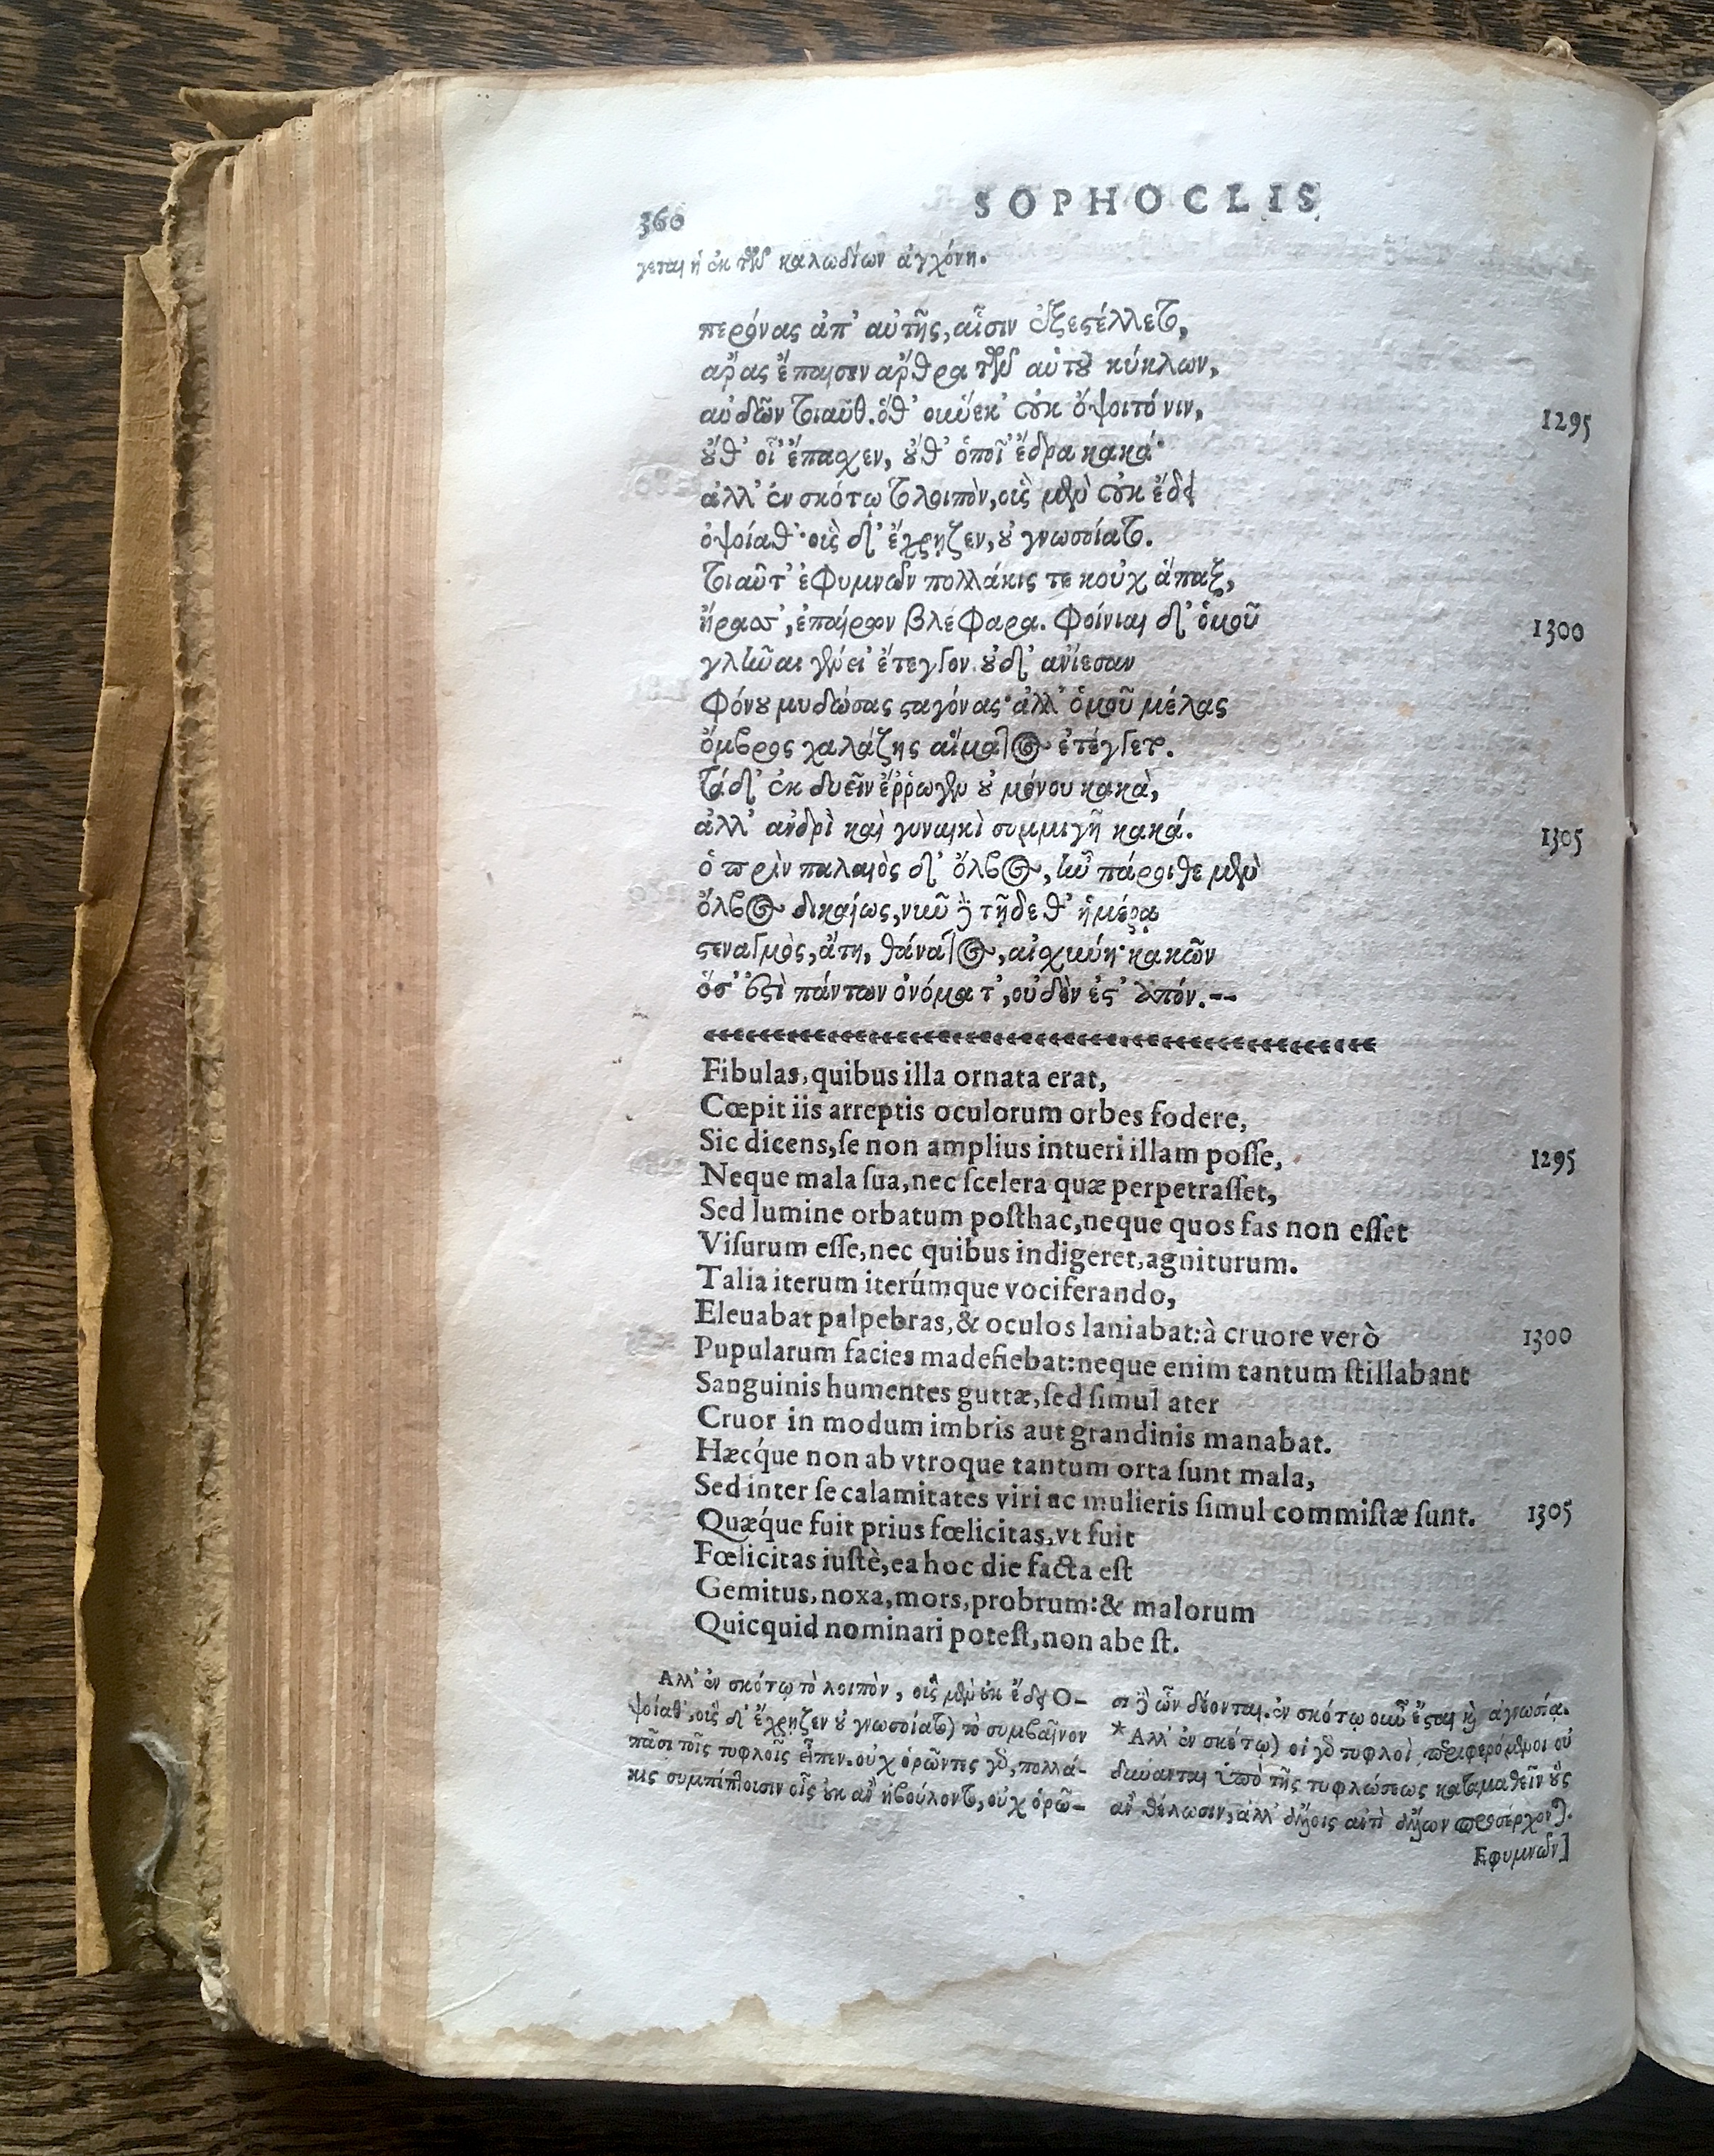 360 SOPHOCLIS
γεται ἡ ἐκ τῶν καλωδίων ἀγχόνη.
περόνας ἀπ' αὐτῆς, αἷσιν ἐξεστέλλετο,
ἄρας ἔπαισεν ἄρθρα τῶν αὐτοῦ κύκλων,
αὐδῶν τοιαῦθ'. ὅθ' οὕνεκ' οὐκ ὄψοιτό νιν,
1295
οὔθ' οἷ' ἔπασχεν, οὔθ' ὁποῖ' ἔδρα κακά·
ἀλλ' ἐν σκότῳ τὸ λοιπὸν, οὓς μὲν οὐκ ἔδει
ὀψοίαθ'· οὓς δ' ἔχρῃζεν, οὐ γνωσοίατο.
τοιαῦτ' ἐφυμνῶν πολλάκις τε κοὐχ ἅπαξ,
ἤρασσ', ἐπαίρων βλέφαρα. φοίνιαι δ' ὁμοῦ
1300
γλῆναι γένει' ἔτεγγον. οὐδ' ἀνίεσαν
φόνου μυδώσας σταγόνας· ἀλλ' ὁμοῦ μέλας
ὄμβρος χαλάζης αἵματος ἐτέγγετο.
τάδ' ἐκ δυεῖν ἔῤῥωγεν οὐ μόνου κακὰ,
ἀλλ' ἀνδρὶ καὶ γυναικὶ συμμιγῆ κακά.
1305
ὁ πρὶν παλαιὸς δ' ὄλβος, ἦν πάροιθε μὲν
ὄλβος δικαίως, νῦν δὲ τῇδε θ' ἡμέρᾳ
στεναγμὸς, ἄτη, θάνατος, αἰσχύνη· κακῶν
ὅσ' ἐστὶ πάντων ὀνόματ', οὐδὲν ἔστ' ἀπόν.--
Fibulas, quibus illa ornata erat,
Cœpit iis arreptis oculorum orbes fodere,
Sic dicens, ſe non amplius intueri illam poſſe,
1295
Neque mala ſua, nec ſcelera quæ perpetraſſet,
Sed lumine orbatum poſthac, neque quos fas non eſſet
Viſurum eſſe, nec quibus indigeret, agniturum.
Talia iterum iterúmque vociferando,
Eleuabat palpebras, & oculos laniabat: à cruore verò
1300
Pupularum facies madefiebat: neque enim tantum ſtillabant
Sanguinis humentes guttæ, ſed ſimul ater
Cruor in modum imbris aut grandinis manabat.
Hæcq́ue non ab vtroque tantum orta ſunt mala,
Sed inter ſe calamitates viri ac mulieris ſimul commiſtæ ſunt.
1305
Quæq́ue fuit prius fœlicitas, vt fuit
Fœlicitas iuſtè, ea hoc die facta eſt
Gemitus, noxa, mors, probrum: & malorum
Quicquid nominari poteſt, non abeſt.
Αλλ' ἐν σκότῳ τὸ λοιπὸν, οὓς μὲν οὐκ ἔδει Ο-
ψοίαθ', οὓς δ' ἔχρῃζεν οὐ γνωσοίατο) τὸ συμβαῖνον
πᾶσι τοῖς τυφλοῖς εἶπεν. οὐχ ὁρῶντες γὰρ, πολλά-
κις συμπίπτουσιν οἷς οὐκ ἂν ἠβούλοντο, οὐχ ὁρῶ-
σι δὲ ὧν δέονται. ἐν σκότῳ οὖν ἔσται καὶ ἀγνωσίᾳ.
*Αλλ' ἐν σκότῳ) οἱ γὰρ τυφλοὶ περιφερόμενοι οὐ
δύνανται ὑπὸ τῆς τυφλώσεως καταμαθεῖν οὓς
ἂν θέλωσιν, ἀλλ' ἄλλοις ἀντὶ ἄλλων προσέρχονται.
Εφυμνῶν]